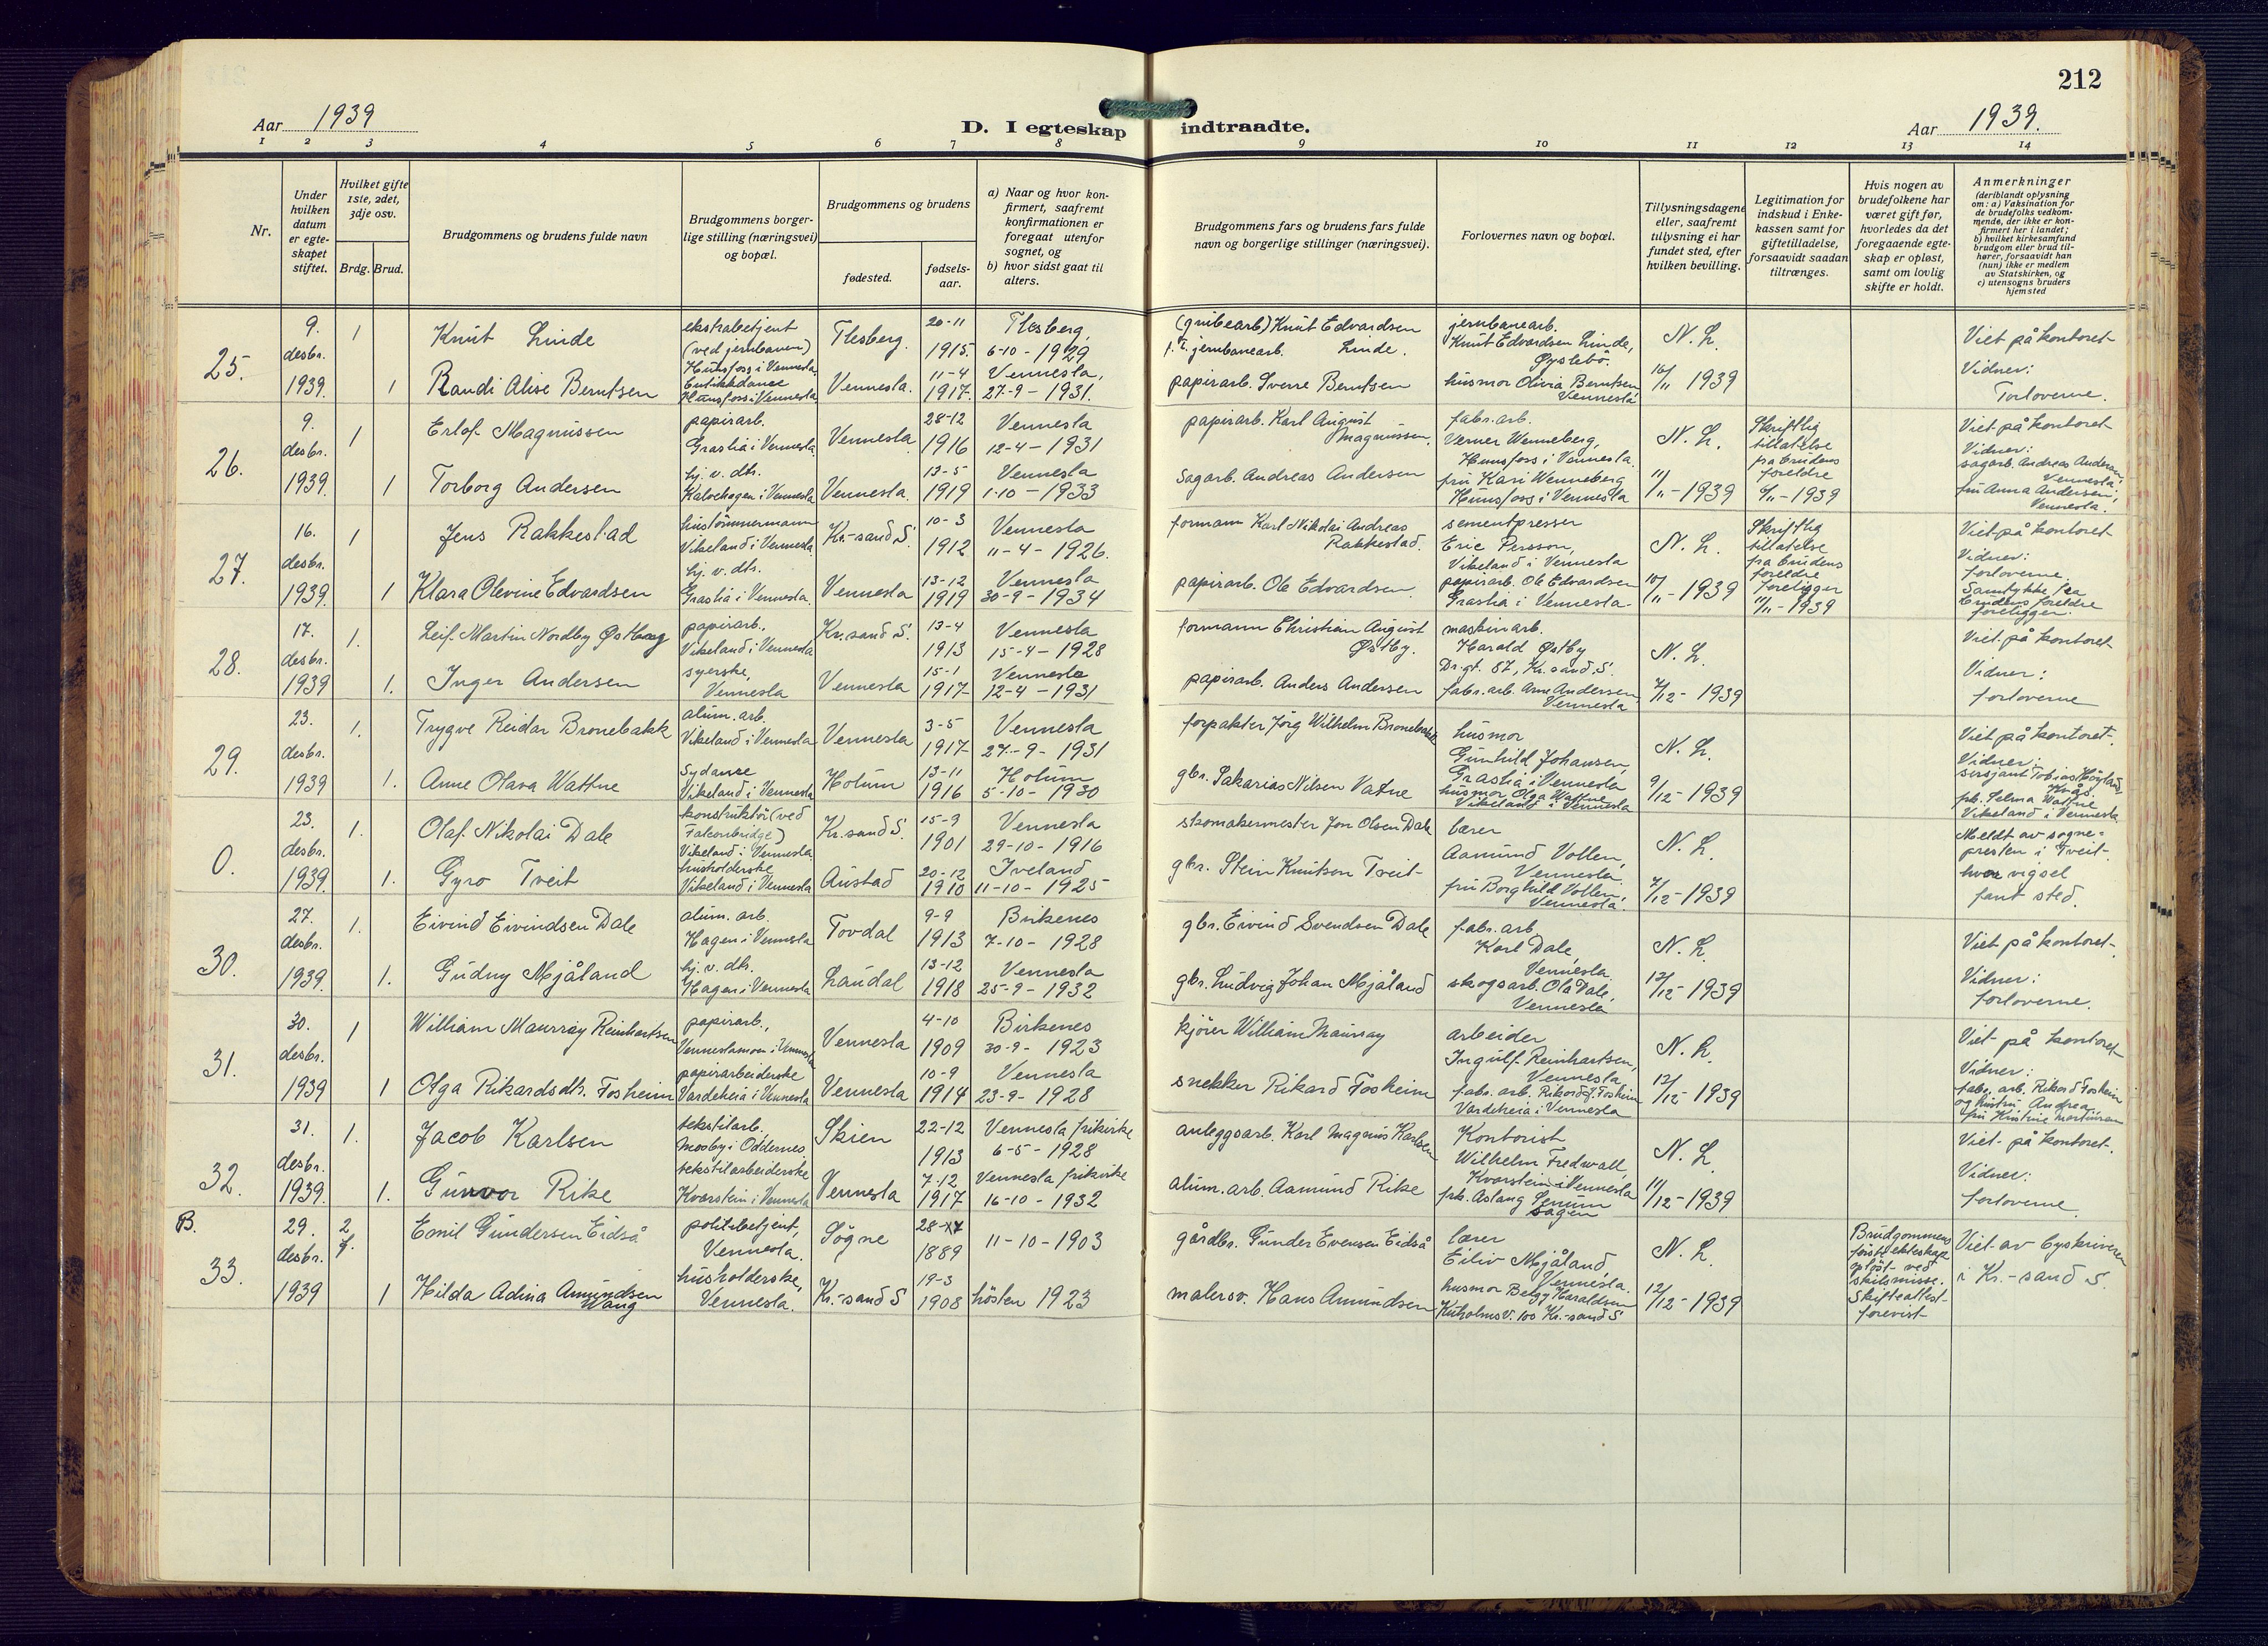 212
Aar 1939
D. I egteskap indtraadte.
Aar 1939.
1 2 3 4 5 6 7 8 9 10 11 12 13 14
Nr.
Under
hvilken
datum
er egte-
skapet
stiftet.
Hvilket gifte
1ste, 2det,
3dje osv.
Brdg. Brud.
Brudgommens og brudens fulde navn
Brudgommens borger-
lige stilling (næringsvei)
og bopæl.
Brudgommens og brudens
fødested.
fødsels-
aar.
a) Naar og hvor kon-
firmert, saafremt
konfirmationen er
foregaat utenfor
sognet, og
b) hvor sidst gaat til
alters.
Brudgommens fars og brudens fars fulde
navn og borgerlige stillinger (næringsvei).
Forlovernes navn og bopæl.
Tillysningsdagene
eller, saafremt
tillysning ei har
fundet sted, efter
hvilken bevilling.
Legitimation for
indskud i Enke-
kassen samt for
giftetilladelse,
forsaavidt saadan
tiltrænges.
Hvis nogen av
brudefolkene har
været gift før,
hvorledes da det
foregaaende egte-
skap er opløst,
samt om lovlig
skifte er holdt.
Anmerkninger
(deriblandt oplysning
om: a) Vaksination for
de brudefolks vedkom-
mende, der ikke er kon-
firmert her i landet;
b) hvilket kirkesamfund
brudgom eller brud til-
hører, forsaavidt han
(hun) ikke er medlem
av Statskirken, og
c) utensogns bruders
hjemsted
25.
9.
desbr.
1939.
1
Knut Linde
ekstrabetjent
(ved jernbanen)
Hunsfoss i Vennesla.
Flesberg.
20-11
1915.
Flesberg,
6-10-1929
(grubearb.) Knut Edvardsen
f.t. jernbanearb. Linde.
jernbanearb.
Knut Edvardsen Linde,
Øyslebö.
N. L.
16/11 1939
Viet på kontoret
Vidner:
Forloverne.
1
Randi Alise Berntsen
Butikkdame
Hunsfoss i Vennesla
Vennesla.
11-4
1917.
Vennesla,
27-9-1931.
papirarb. Sverre Berntsen
husmor Olivia Berntsen
Vennesla
26.
9.
desbr.
1939.
1
Erlof Magnussen
papirarb.
Graslia i Vennesla
Vennesla
28-12
1916
Vennesla
12-4-1931
papirarb. Karl August
Magnussen.
fabr. arb.
Verner Wenneberg,
Hunsfoss i Vennesla.
N. L.
11/11-1939
Skriftlig
tillatelse
fra brudens
foreldre
6/11-1939
Viet på kontoret
Vidner:
sagarb. Andreas Andersen,
Vennesla.
fru Anna Andersen,
Vennesla.
1
Torborg Andersen
hj. v. dtr.
Kalvehagen i Vennesla
Vennesla.
13-5
1919
Vennesla
1-10-1933
Sagarb. Andreas Andersen
fru Kari Wenneberg
Hunsfoss i Vennesla
27.
16.
desbr.
1939.
1
Jens Rakkestad
hustömmermann
Vikeland i Vennesla
Kr.-sand S.
10-3
1912
Vennesla
11-4-1926.
formann Karl Nikolai Andreas
Rakkestad.
sementpresser
Eric Persson,
Vikeland i Vennesla
N. L.
10/11-1939
Skriftlig
tillatelse
fra brudens
foreldre
foreligger
11/11-1939
Viet på kontoret
Vidner:
forloverne
Samtykke fra
brudens foreldre
foreligger.
1
Klara Olevine Edvardsen
hj. v. dtr.
Graslia i Vennesla.
Vennesla
13-12
1919
Vennesla
30-9-1934
papirarb. Ole Edvardsen.
papirarb. Ole Edvardsen
Graslia i Vennesla
28.
17.
desbr.
1939
1.
Leif Martin Nordby Østberg
papirarb.,
Vikeland i Vennesla
Kr.sand S.
13-4
1913
Vennesla
15-4-1928
formann Christian August
Østby.
maskinarb.
Harald Østby
Dr.gt. 87, Kr.sand S.
N. L.
7/12-1939
Viet på kontoret
Vidner:
forloverne
1.
Inger Andersen
syerske,
Vennesla
Vennesla
15-1
1917
Vennesla
12-4-1931
papirarb. Anders Andersen
fabr. arb. Arne Andersen
Vennesla
29.
23.
desbr.
1939
1.
Trygve Reidar Bronebakk
alum. arb.
Vikeland i Vennesla
Vennesla
3-5
1917
Vennesla
27-9-1931
forpakter Jörg Wilhelm Bronebakk
husmor
Gunhild Johansen,
Graslia i Vennesla
N. L.
9/12-1939
Viet på kontoret.
Vidner:
sersjant Tobias Høyland,
frk. Selma Wattne
Vikeland i Vennesla
1.
Anne Olava Wattne
Sydame
Vikeland i Vennesla
Holum
13-11
1916
Holum
5-10-1930
gbr. Sakarias Nilsen Vatne
husmor Olga Wattne
Vikeland i Vennesla
0.
23.
desbr.
1939.
1.
Olaf Nikolai Dale
konstruktör (ved
Falconbridge)
Vikeland i Vennesla.
Kr.sand S.
15-9
1901
Vennesla
29-10-1916
skomakermester Jon Olsen Dale
lærer
Aamund Vollen,
Vennesla.
N. L.
7/12-1939
Meldt av sogne-
presten i Tveit
hvor vigsel
fant sted.
1.
Gyro Tveit
husholderske
Vikeland i Vennesla
Austad
20-12
1910
Iveland
11-10-1925
gbr. Stein Knutson Tveit
fru Borghild Vollen,
Vennesla.
30.
27.
desbr.
1939.
1.
Eivind Eivindsen Dale
alum. arb.
Hagen i Vennesla
Tovdal
9-9
1913
Birkenes
7-10-1928
gbr. Eivind Svendsen Dale
fabr. arb.
Karl Dale,
Vennesla
N. L.
12/12-1939
Viet på kontoret.
Vidner:
forloverne.
1.
Gudny Mjåland
hj. v. dtr.
Hagen i Vennesla
Laudal
13-12
1918
Vennesla
25-9-1932
gbr. Ludvig Johan Mjåland
skogsarb. Ola Dale,
Vennesla
31.
30.
desbr.
1939
1
William Maurray Reinhartsen
papirarb.,
Venneslamoen i Vennesla
Vennesla
4-10
1909
Birkenes
30-9-1923
kjörer William Maurray
arbeider
Ingulf Reinhartsen,
Vennesla
N. L.
12/12-1939
Viet på kontoret
Vidner:
fabr. arb. Rikard Fosheim
og hustru Andrea
fru Kristine
1
Olga Rikardsdtr. Fosheim
papirarbeiderske
Vardeheia i Vennesla
Vennesla
10-9
1914
Vennesla
23-9-1928
snekker Rikard Fosheim
fabr. arb. Rikard J. Fosheim
Vardeheia i Vennesla
32.
31.
desbr.
1939.
1.
Jacob Karlsen
tekstilarb.
Mosby i Oddernes
Skien
22-12
1913
Vennesla frikirke
6-5-1928
anleggsarb. Karl Magnus Karlsen
Kontorist
Wilhelm Fredwall,
Kvarstein i Vennesla
N. L.
11/12-1939
Viet på kontoret.
Vidner:
forloverne.
1.
Gunvor Rike
tekstilarbeiderske
Kvarstein i Vennesla
Vennesla
7-12
1917
Vennesla frikirke
16-10-1932
alum. arb. Aamund Rike
frk. Aslaug
B.
33.
29.
desbr.
1939
2
Emil Gundersen Eidså
politibetjent,
Vennesla.
Søgne
1889
11-10-1903
gårdbr. Gunder Evensen Eidså
lærer
Eiliv Mjåland,
Vennesla.
N. L.
12/12-1939
Brudgommens
første ekteskap
opløst ved
skilsmisse.
Skifteattest
forevist
Viet av byskriveren
i Kr.-sand S.
1
Hilda Adina Amundsen
Waug
husholderske,
Vennesla.
Kr.-sand S
19-3
1908
hösten 1923
malersv. Hans Amundsen
husmor Haraldsen
Kuholmsv. 100 Kr.-sand S